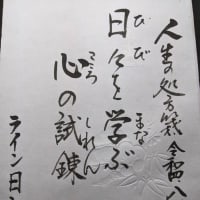 人生の処方箋 令和
ひび まな
日々を学ぶ
こころ しれん
心の試錬
ライン日